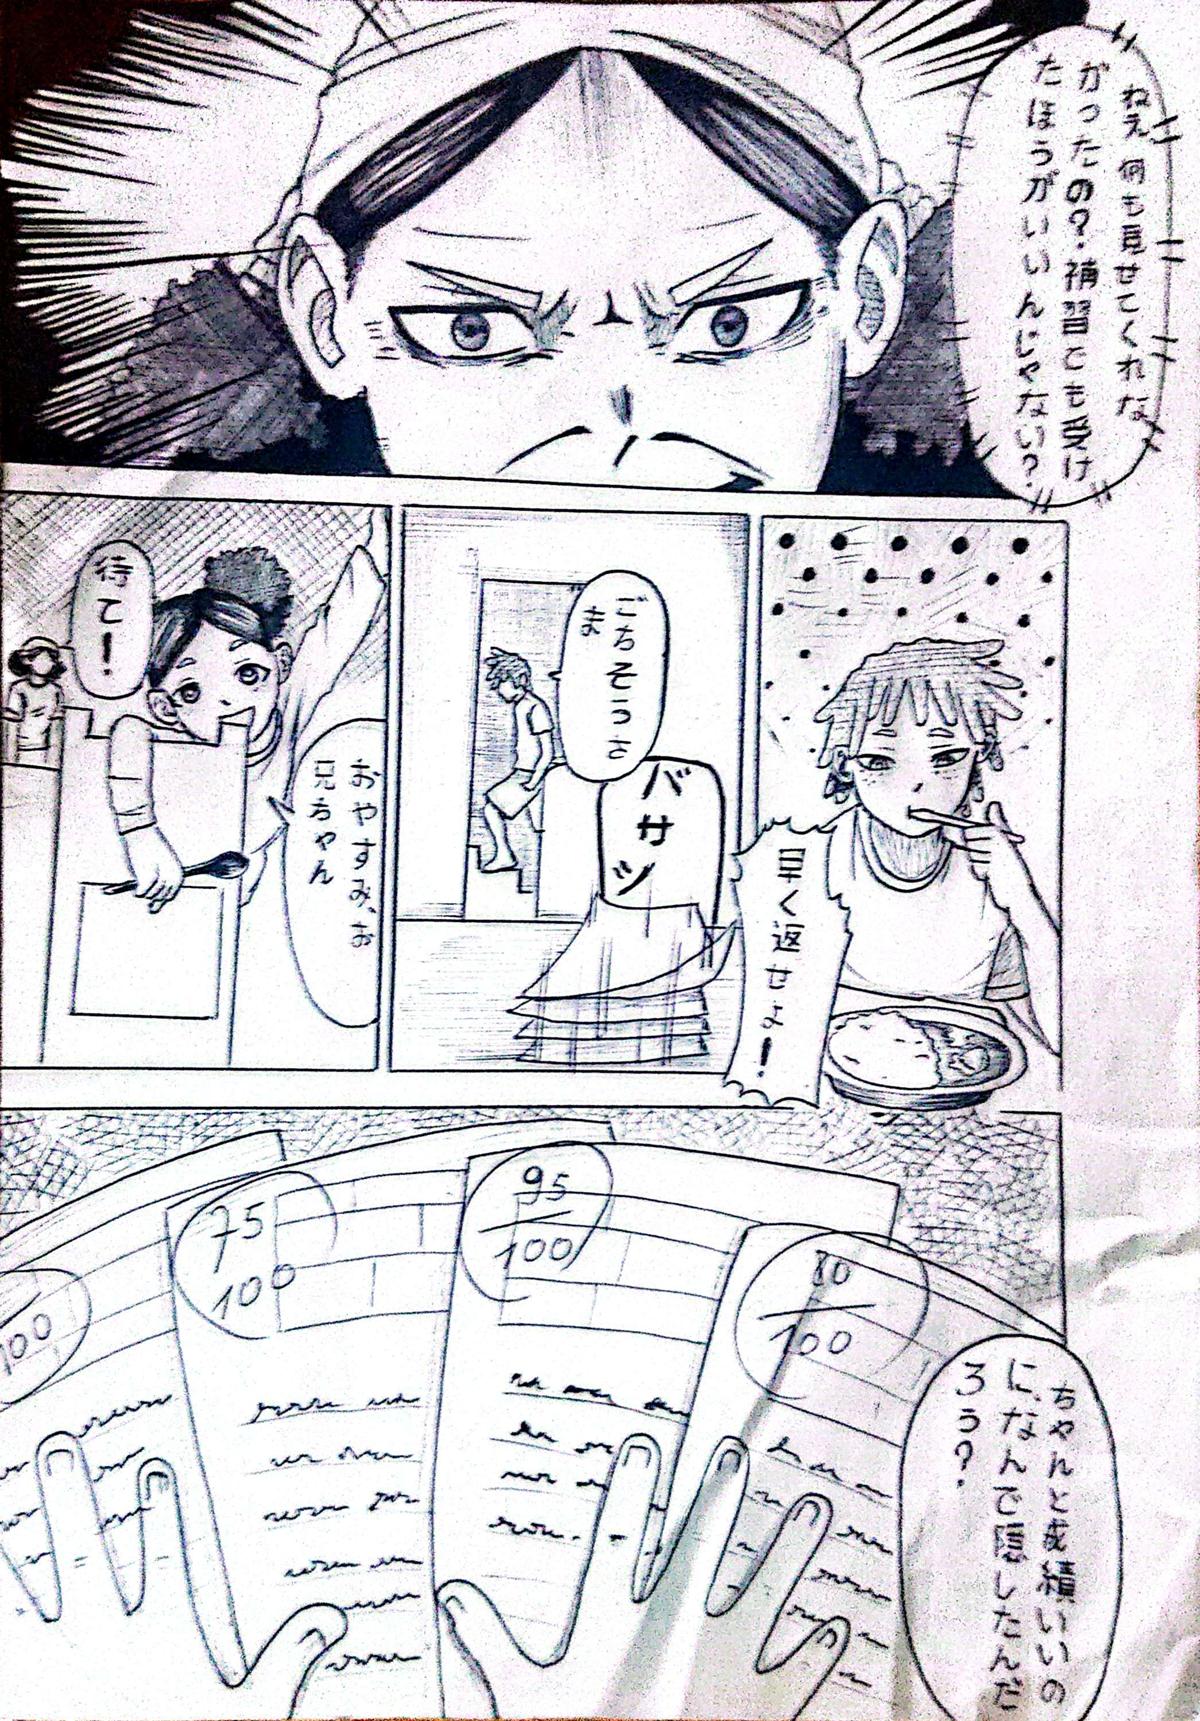 ねえ何も見せてくれな
かったの？補習でも受け
たほうがいいんじゃない？
早く返せよー！
ごちそうさ
ま
バサッ
待て！
おやすみ、お
兄ちゃん
80
100
95
100
75
100
100
ちゃんと成績いいの
に、なんで隠したんだ
ろう？